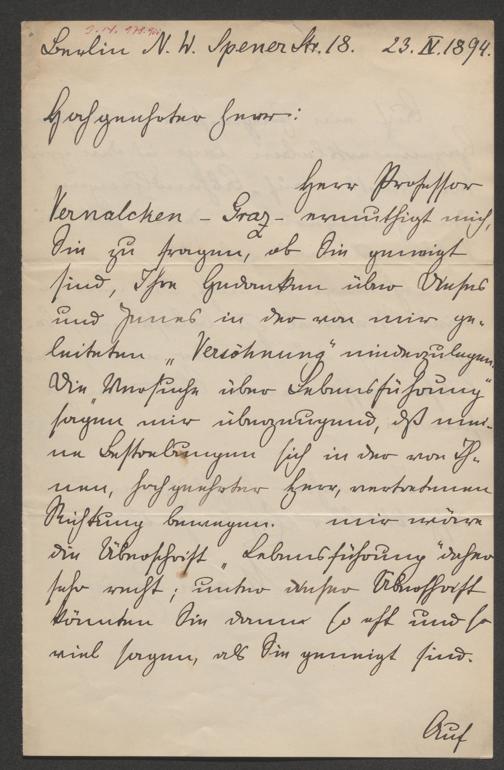 Berlin N. W. Spener Str. 18. 23. IV. 1894.
Hochgeehrter Herr:
Herr Professor
Vernalcken - Graz - ermuthigt mich,
Sie zu fragen, ob Sie geneigt
sind, Ihre Gedanken über Dieses
und Jenes in der von mir ge-
leiteten „Versöhnung" niederzulegen.
Die „Versuche über Lebensführung"
sagen mir überzeugend, daß mei-
ne Bestrebungen sich in der von Ih-
nen, hochgeehrter Herr, vertretenen
Richtung bewegen. Mir wäre
die Überschrift „Lebensführung" daher
sehr recht; unter dieser Überschrift
könnten Sie dann so oft und so
viel sagen, als Sie geneigt sind.
Auf